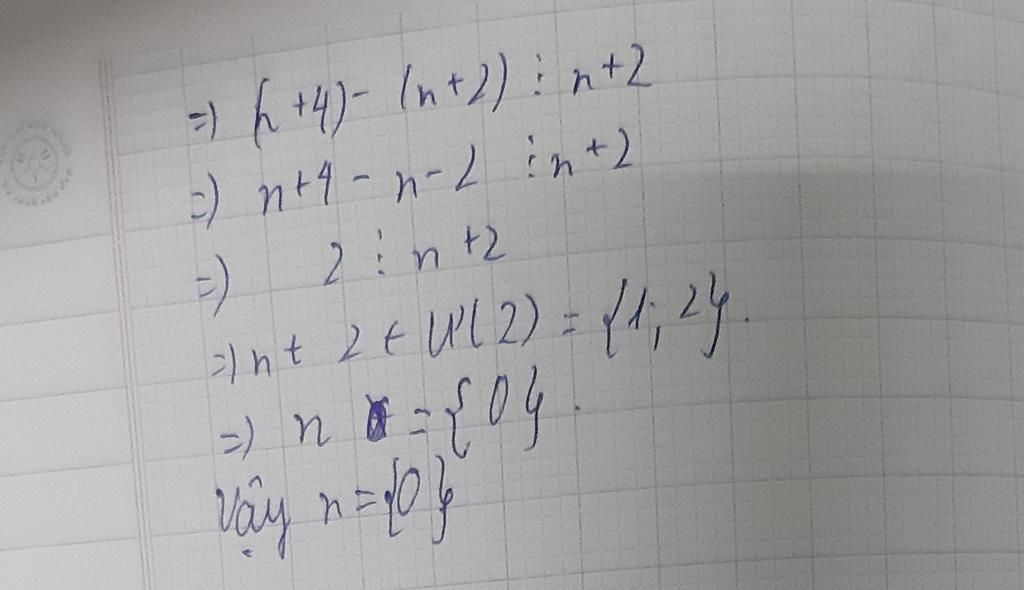 =) (n+4) - (n+2) ⋮ n+2
=) n+4 - n - 2 ⋮ n+2
=) 2 ⋮ n+2
=) n + 2 ∈ Ư(2) = {1; 2}.
=) n = {0}.
Vậy n = {0}